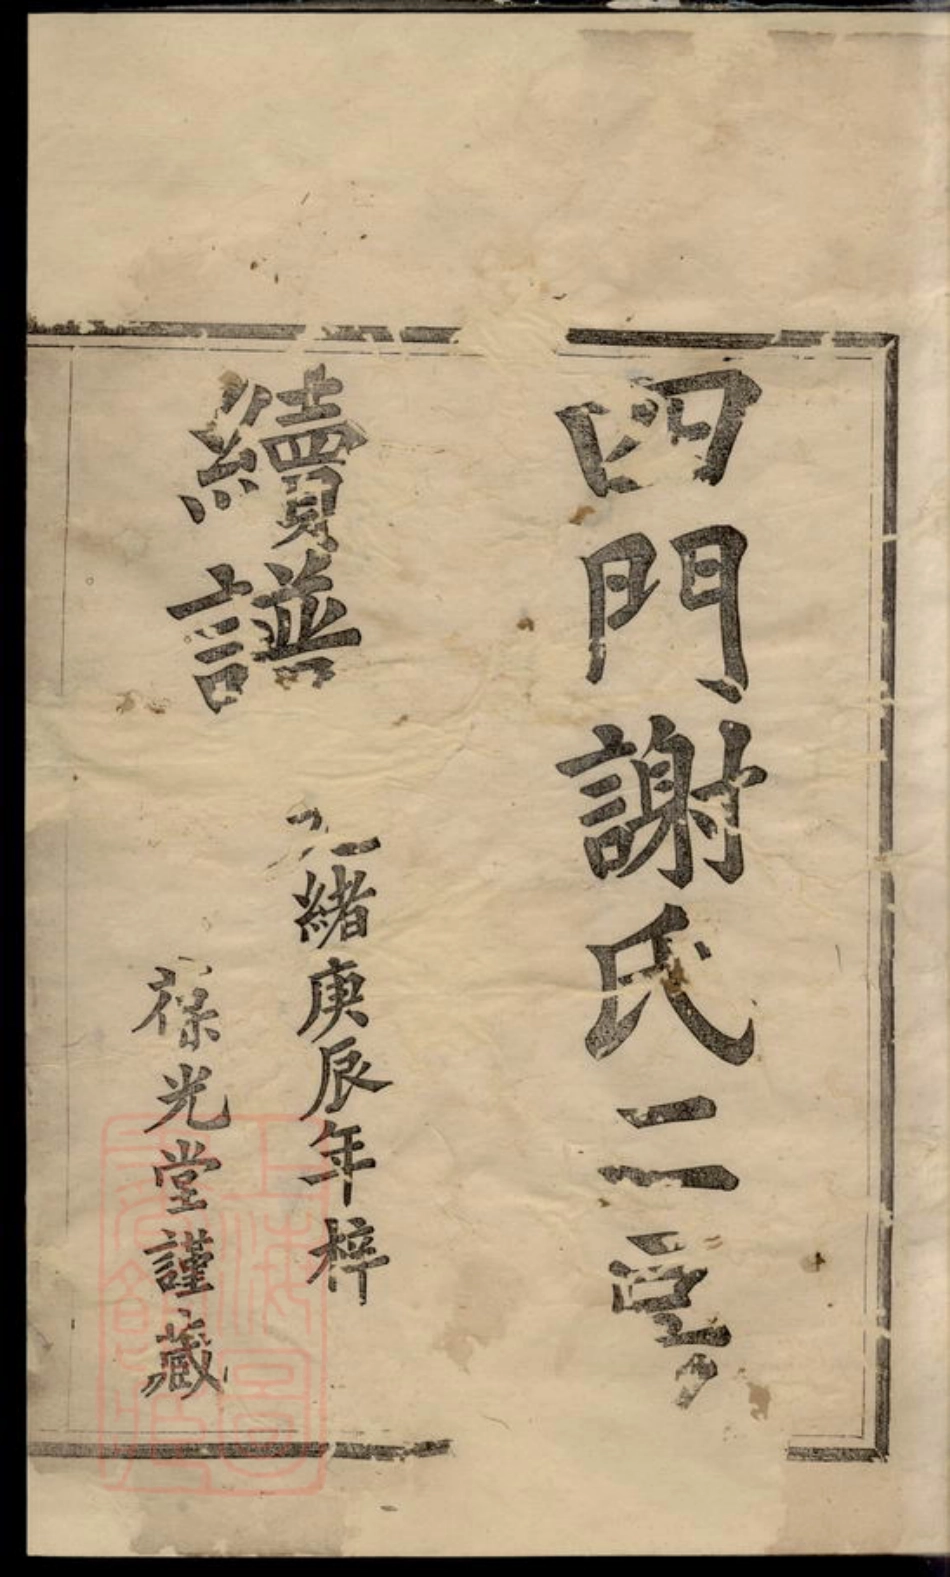 四門謝氏二房
續譜
光緒庚辰年梓
葆光堂謹藏
上海圖書館藏